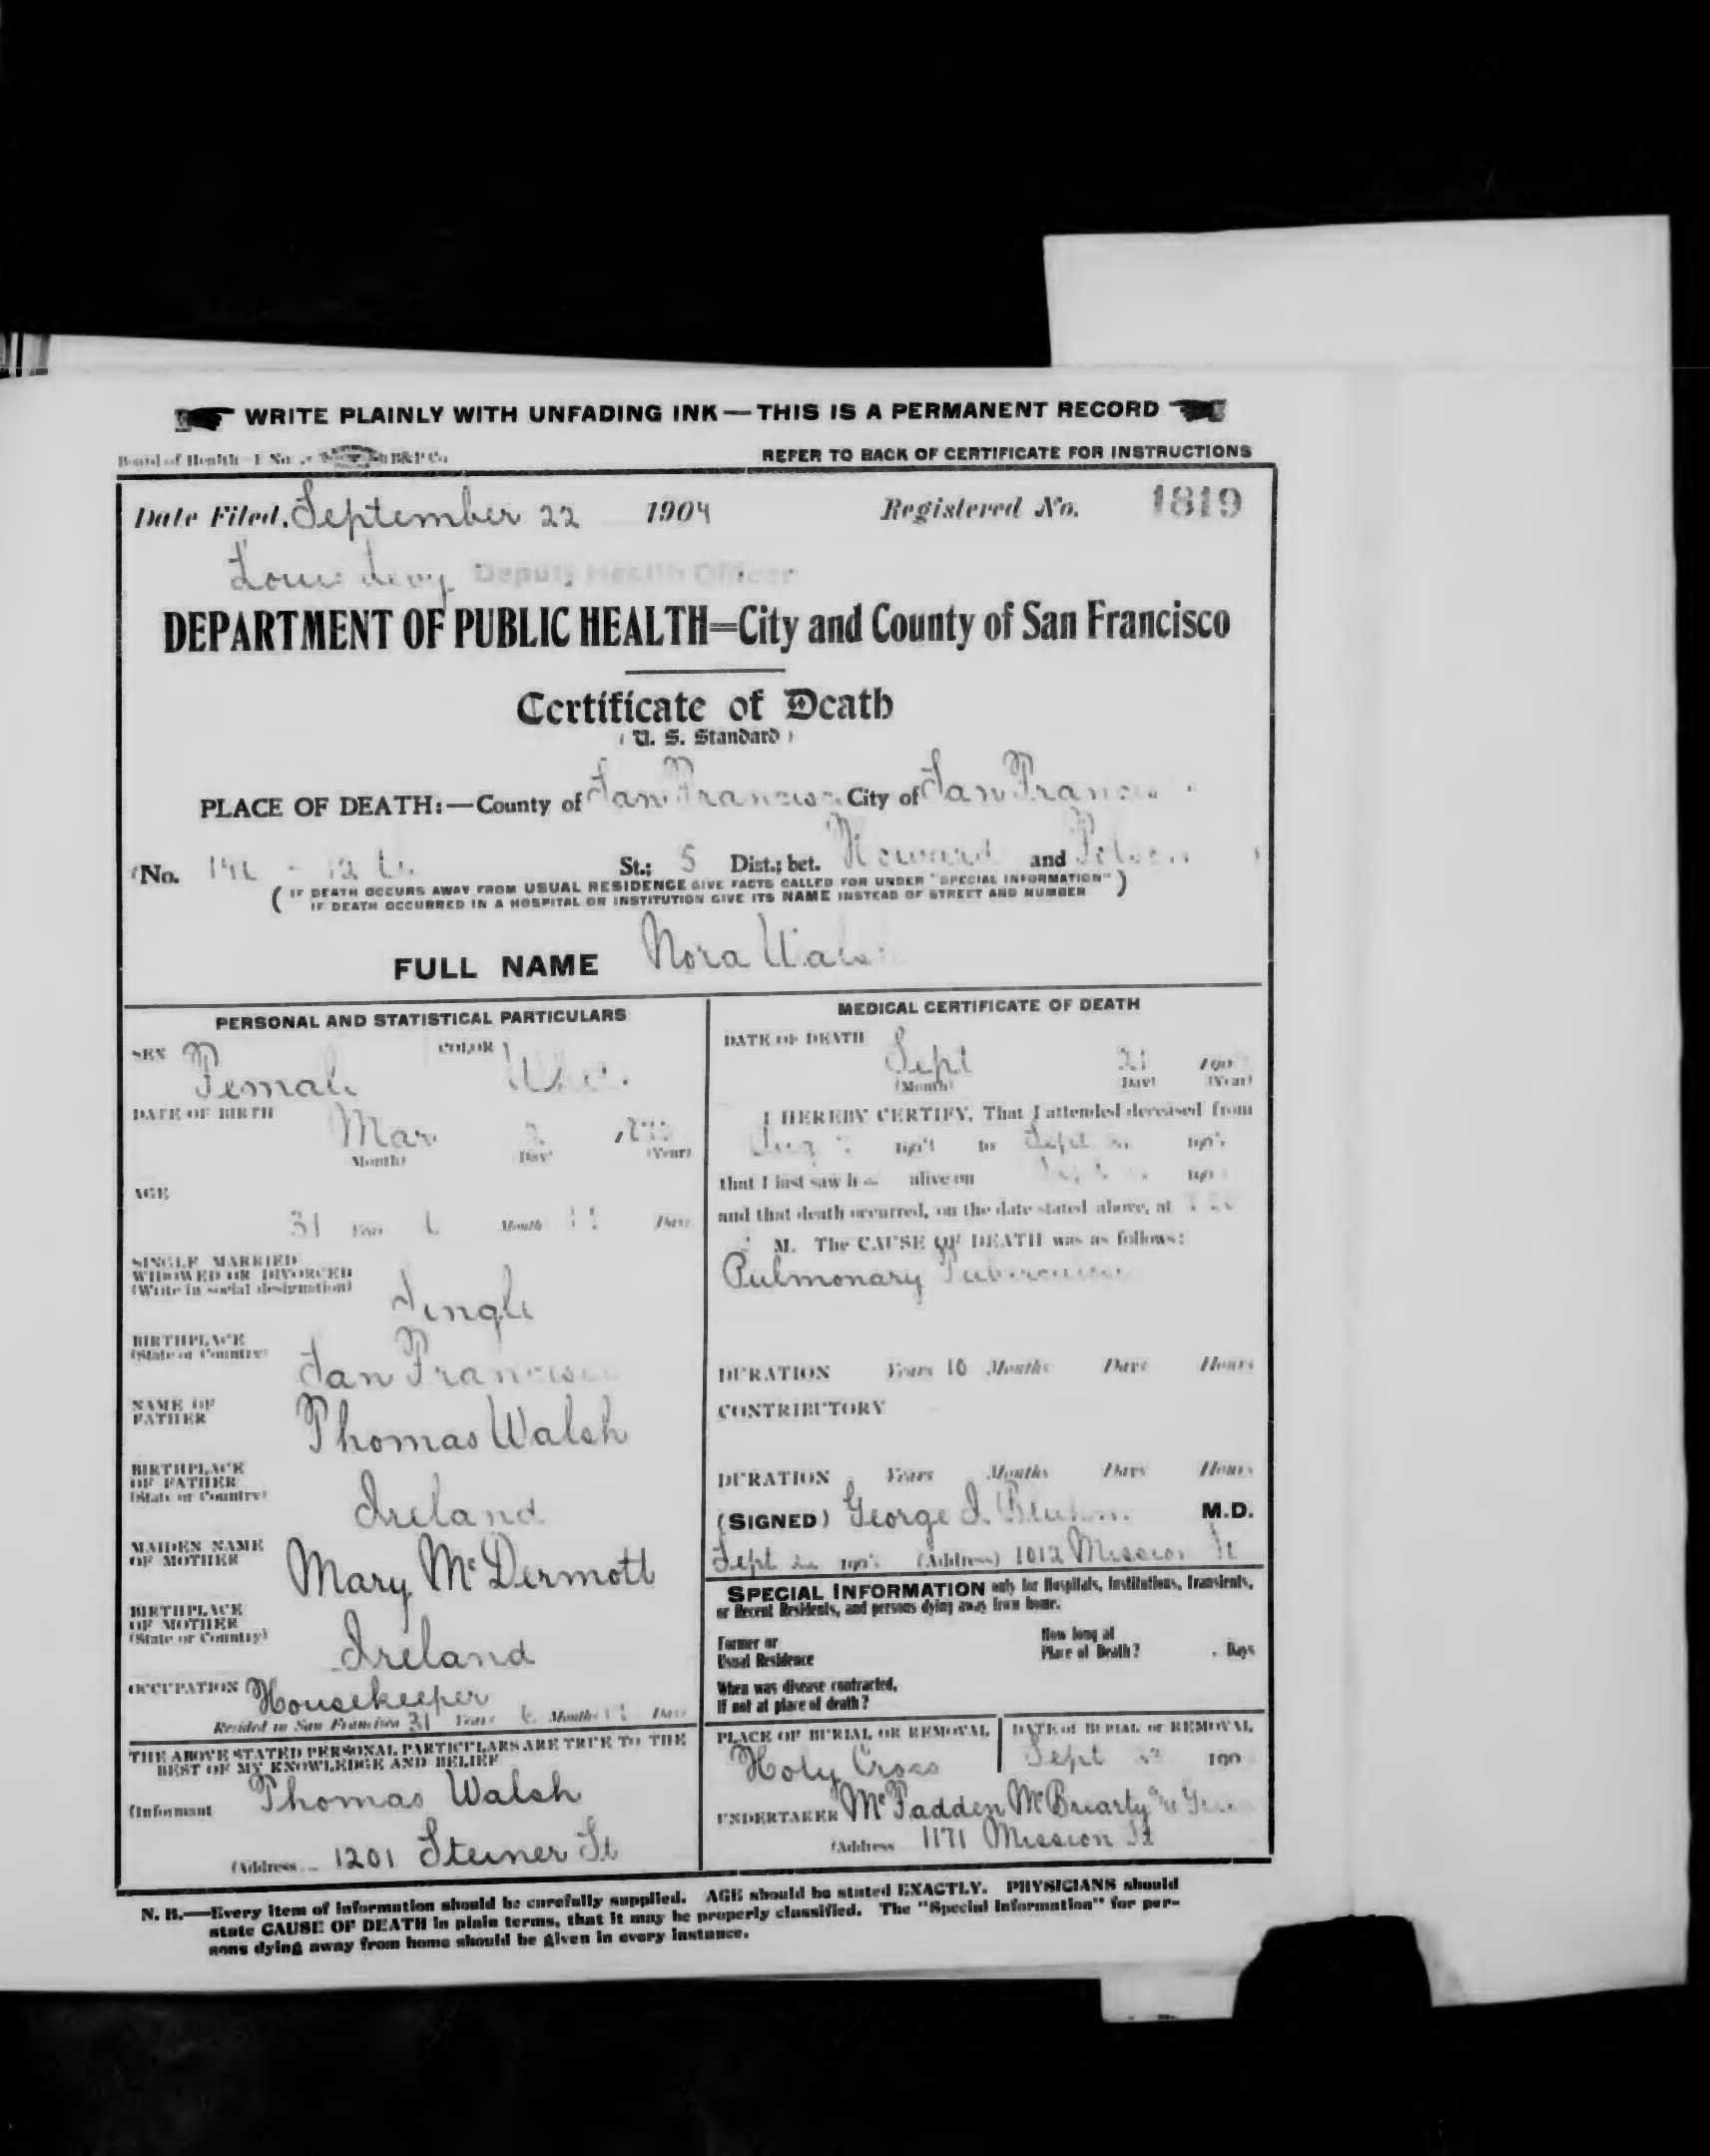 WRITE PLAINLY WITH UNFADING INK — THIS IS A PERMANENT RECORD
Board of Health B&P Co.
REFER TO BACK OF CERTIFICATE FOR INSTRUCTIONS
Date Filed, September 22 1904 Registered No. 1819
Louis Levy Deputy Health Officer
DEPARTMENT OF PUBLIC HEALTH=City and County of San Francisco
Certificate of Death
(U. S. Standard)
PLACE OF DEATH:—County of San Francisco City of San Francisco
(No. 12 St.; 5 Dist.; bet. Howard and Folsom )
( IF DEATH OCCURS AWAY FROM USUAL RESIDENCE GIVE FACTS CALLED FOR UNDER "SPECIAL INFORMATION" )
IF DEATH OCCURRED IN A HOSPITAL OR INSTITUTION GIVE ITS NAME INSTEAD OF STREET AND NUMBER
FULL NAME Nora Walsh
PERSONAL AND STATISTICAL PARTICULARS
SEX Female COLOR White
DATE OF BIRTH Mar
(Month) (Day) (Year)
AGE
31 Years Months Days
SINGLE MARRIED
WIDOWED OR DIVORCED
(Write in social designation)
Single
BIRTHPLACE
(State or Country)
San Francisco
NAME OF
FATHER
Thomas Walsh
BIRTHPLACE
OF FATHER
(State or Country)
Ireland
MAIDEN NAME
OF MOTHER
Mary McDermott
BIRTHPLACE
OF MOTHER
(State or Country)
Ireland
OCCUPATION Housekeeper
Resided in San Francisco 31 Years 6 Months Days
THE ABOVE STATED PERSONAL PARTICULARS ARE TRUE TO THE
BEST OF MY KNOWLEDGE AND BELIEF
(Informant Thomas Walsh
(Address 1201 Steiner St
MEDICAL CERTIFICATE OF DEATH
DATE OF DEATH
Sept 21 190
(Month) (Day) (Year)
I HEREBY CERTIFY, That I attended deceased from
Aug 190 to Sept 190
that I last saw h alive on Sept 190
and that death occurred, on the date stated above, at
M. The CAUSE OF DEATH was as follows:
Pulmonary Tuberculosis
DURATION Years 10 Months Days Hours
CONTRIBUTORY
DURATION Years Months Days Hours
(SIGNED) George M.D.
Sept 190 (Address) 1012 Mission St
SPECIAL INFORMATION only for Hospitals, Institutions, Transients,
or Recent Residents, and persons dying away from home.
Former or
Usual Residence
How long at
Place of Death? Days
When was disease contracted,
If not at place of death?
PLACE OF BURIAL OR REMOVAL
Holy Cross
DATE of BURIAL or REMOVAL
Sept 190
UNDERTAKER McFadden McBrearty
(Address 1171 Mission St
N. B.—Every item of information should be carefully supplied. AGE should be stated EXACTLY. PHYSICIANS should
state CAUSE OF DEATH in plain terms, that it may be properly classified. The "Special Information" for per-
sons dying away from home should be given in every instance.